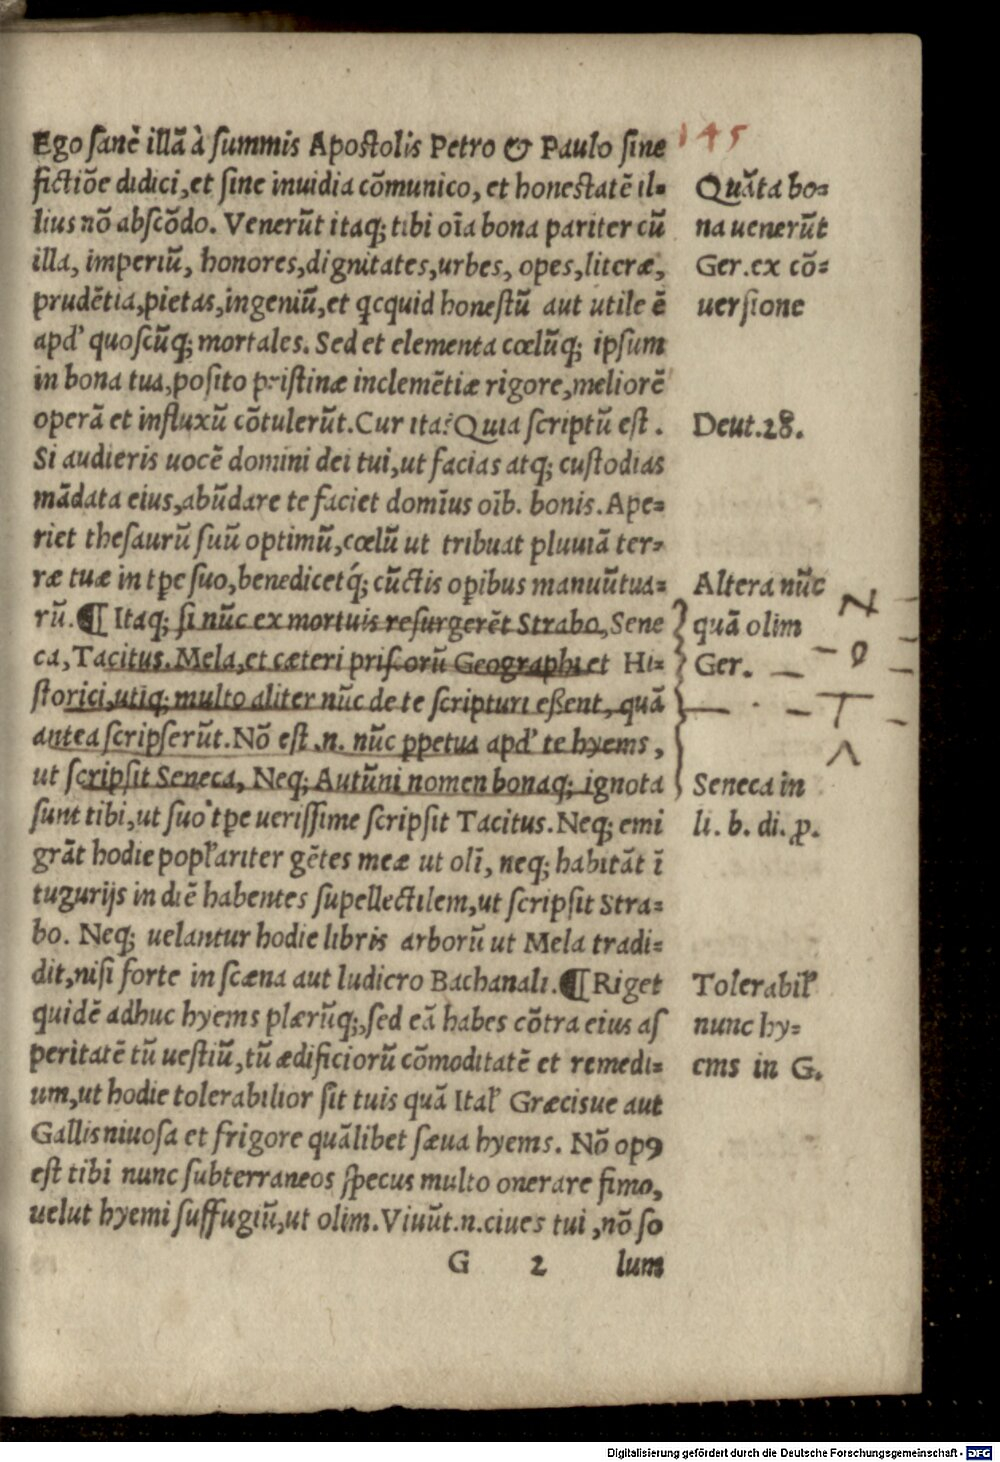 145
Ego sanè illã à summis Apostolis Petro & Paulo sine
fictiõe didici, et sine inuidia cõmunico, et honestatẽ il=
lius nõ abscõdo. Venerũt itaq; tibi oĩa bona pariter cũ
illa, imperiũ, honores, dignitates, urbes, opes, literæ,
prudẽtia, pietas, ingeniũ, et qcquid honestũ aut utile ẽ
apd' quoscũq; mortales. Sed et elementa cœlũq; ipsum
in bona tua, posito pristinæ inclemẽtiæ rigore, meliorẽ
operã et influxũ cõtulerũt. Cur ita? Quia scriptũ est.
Si audieris uocẽ domini dei tui, ut facias atq; custodias
mãdata eius, abũdare te faciet domĩus oĩb. bonis. Ape=
riet thesaurũ suũ optimũ, cœlũ ut tribuat pluuiã ter=
ræ tuæ in tpe suo, benedicetq́; cũctis opibus manuũ tua=
rũ. ¶ Itaq; si nũc ex mortuis resurgerẽt Strabo, Sene
ca, Tacitus, Mela, et cæteri priscorũ Geographi et Hi=
storici, utiq; multo aliter nũc de te scripturi eßent, quã
antea scripserũt. Nõ est .n. nũc ꝑpetua apd' te hyems,
ut scripsit Seneca, Neq; Autũni nomen bonaq; ignota
sunt tibi, ut suo tpe uerissime scripsit Tacitus. Neq; emi
grãt hodie popl'ariter gẽtes meæ ut olĩ, neq; habitãt ĩ
tugurijs in diẽ habentes supellectilem, ut scripsit Stra=
bo. Neq; uelantur hodie libris arborũ ut Mela tradi=
dit, nisi forte in scæna aut ludicro Bachanali. ¶ Riget
quidẽ adhuc hyems plærũq;, sed eã habes cõtra eius as
peritatẽ tũ uestiũ, tũ ædificiorũ cõmoditatẽ et remedi=
um, ut hodie tolerabilior sit tuis quã Ital' Græcisue aut
Gallis niuosa et frigore quãlibet sæua hyems. Nõ opꝯ
est tibi nunc subterraneos specus multo onerare fimo,
uelut hyemi suffugiũ, ut olim. Viuũt .n. ciues tui, nõ so
G 2 lum
Quãta bo=
na uenerũt
Ger. ex cõ=
uersione
Deut. 28.
Altera nũc
quã olim
Ger.
N
O
T
A
Seneca in
li. b. di. ꝓ.
Tolerabil'
nunc hy=
ems in G.
Digitalisierung gefördert durch die Deutsche Forschungsgemeinschaft - DFG